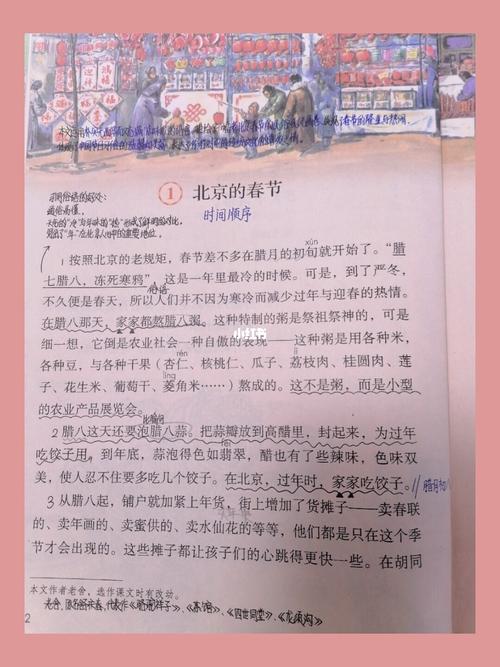 迎祥
鸿禧
福
① 北京的春节
时间顺序
1 按照北京的老规矩，春节差不多在腊月的初旬就开始了。“腊
xún
七腊八，冻死寒鸦”，这是一年里最冷的时候。可是，到了严冬，
俗语
不久便是春天，所以人们并不因为寒冷而减少过年与迎春的热情。
在腊八那天，家家都熬腊八粥。这种特制的粥是祭祖祭神的，可是
小红书
细一想，它倒是农业社会一种自傲的表现——这种粥是用各种米，
各种豆，与各种干果（杏仁、核桃仁、瓜子、荔枝肉、桂圆肉、莲
rén
子、花生米、葡萄干、菱角米……）熬成的。这不是粥，而是小型
líng
的农业产品展览会。
2 腊八这天还要泡腊八蒜。把蒜瓣放到高醋里，封起来，为过年
吃饺子用。到年底，蒜泡得色如翡翠，醋也有了些辣味，色味双
美，使人忍不住要多吃几个饺子。在北京，过年时，家家吃饺子。
3 从腊八起，铺户就加紧上年货，街上增加了货摊子——卖春联
的、卖年画的、卖蜜供的、卖水仙花的等等，他们都是只在这个季
节才会出现的。这些摊子都让孩子们的心跳得更快一些。在胡同
本文作者老舍，选作课文时有改动。
老舍，原名舒庆春，代表作《骆驼祥子》、《茶馆》、《四世同堂》、《龙须沟》
2